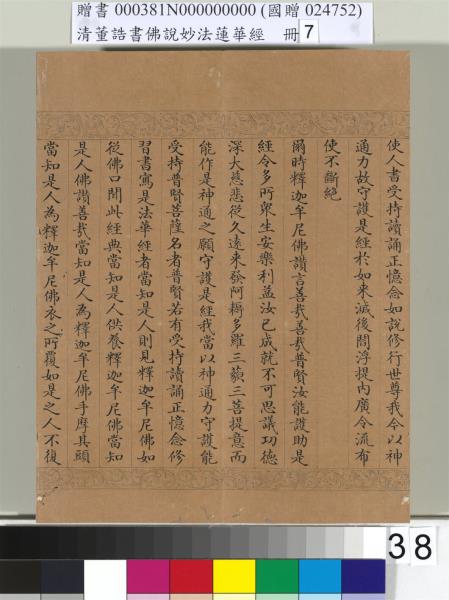 贈書 000381N000000000 (國贈 024752)
清董誥書佛說妙法蓮華經 冊 7
使人書受持讀誦正憶念如說修行世尊我今以神
通力故守護是經於如來滅後閻浮提內廣令流布
使不斷絕
爾時釋迦牟尼佛讚言善哉善哉普賢汝能護助是
經令多所眾生安樂利益汝已成就不可思議功德
深大慈悲從久遠來發阿耨多羅三藐三菩提意而
能作是神通之願守護是經我當以神通力守護能
受持普賢菩薩名者普賢若有受持讀誦正憶念修
習書寫是法華經者當知是人則見釋迦牟尼佛如
從佛口聞此經典當知是人供養釋迦牟尼佛當知
是人佛讚善哉當知是人為釋迦牟尼佛手摩其頭
當知是人為釋迦牟尼佛衣之所覆如是之人不復
38